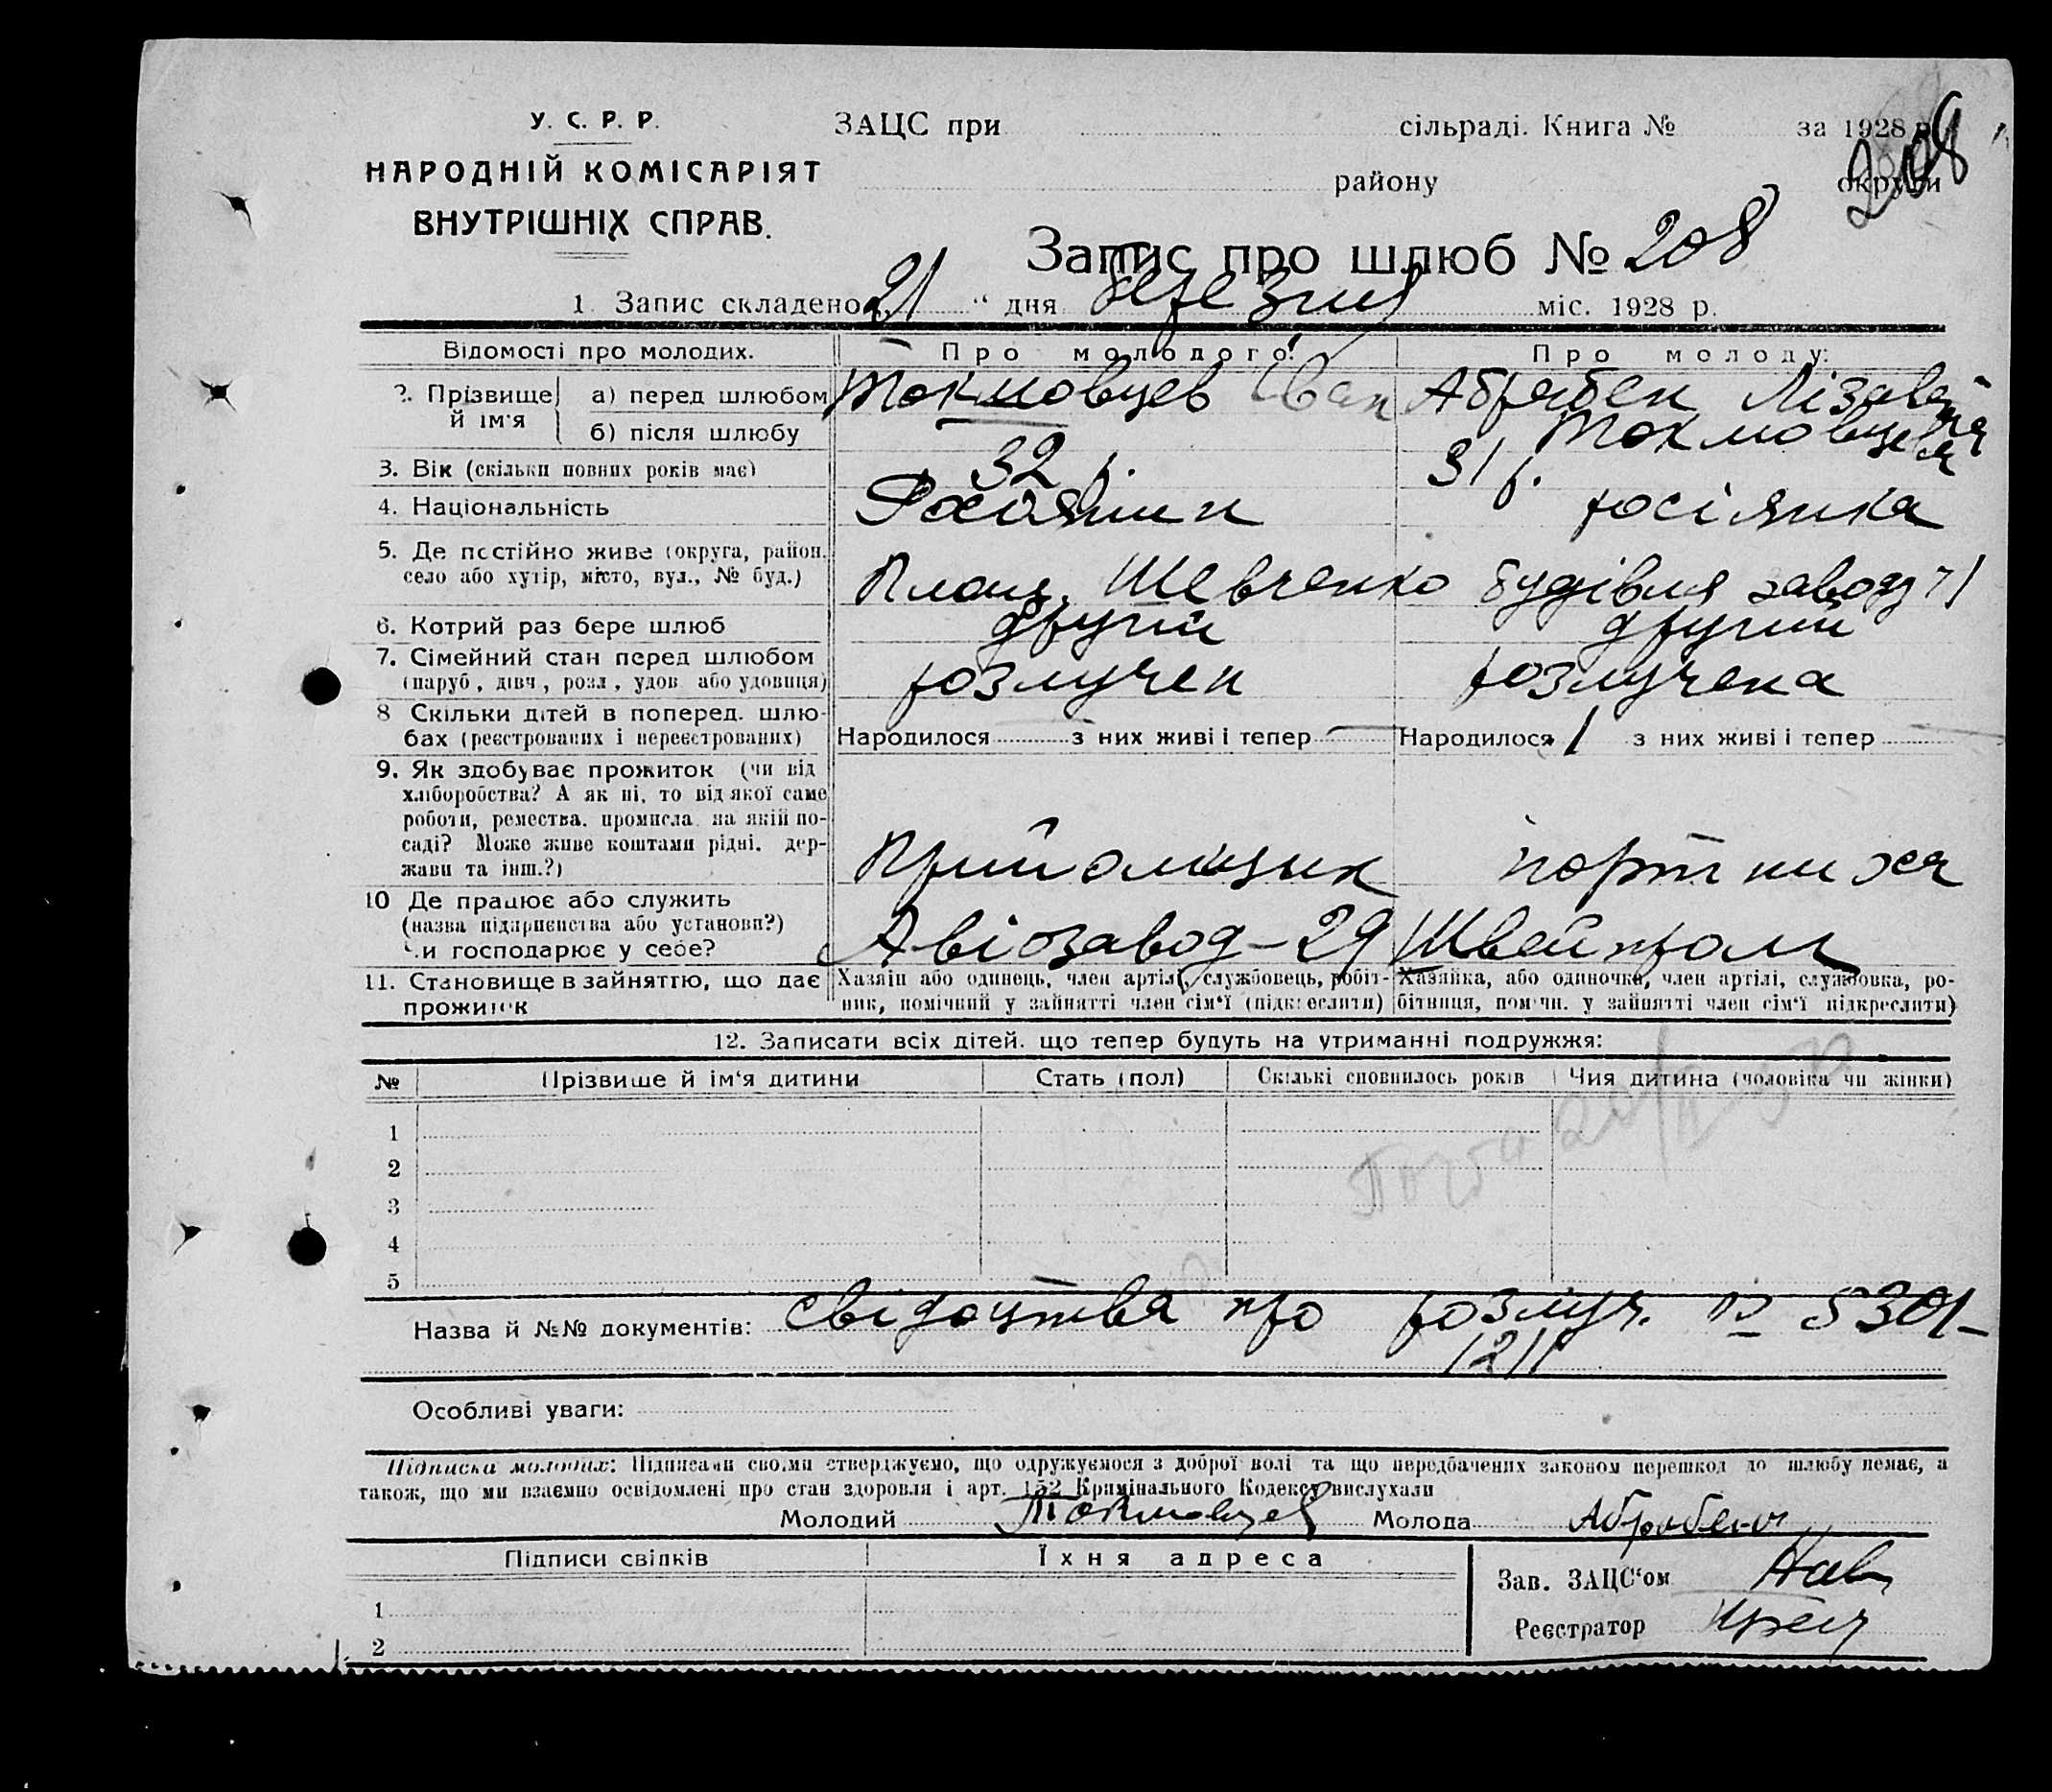 У. С. Р. Р.
НАРОДНІЙ КОМІСАРІЯТ
ВНУТРІШНІХ СПРАВ.
ЗАЦС при сільраді. Книга № за 1928 р.
району округи
209
Запис про шлюб № 208
1. Запис складено „21“ дня березня міс. 1928 р.
Відомості про молодих. Про молодого: Про молоду:
2. Прізвище й ім'я
а) перед шлюбом Токмовцев Іван Абрабен Лізавета
б) після шлюбу Токмовцева
3. Вік (скільки повних років має) 32 р. 31 р.
4. Національність росіянка
5. Де постійно живе (округа, район.
село або хутір, місто, вул., № буд.) Площ. Шевченко будівля заводу 71
6. Котрий раз бере шлюб другий другий
7. Сімейний стан перед шлюбом
(паруб., дівч., розл., удов. або удовиця) розлучен розлучена
8 Скільки дітей в поперед. шлю-
бах (реєстрованих і нереєстрованих) Народилося з них живі і тепер — Народилося 1 з них живі і тепер
9. Як здобуває прожиток (чи від
хліборобства? А як ні, то від якої саме
роботи, ремества, промисла, на якій по-
саді? Може живе коштами рідні, дер-
жави та інш.?) Прийомщик портниха
10 Де працює або служить
(назва підприємства або установи?)
Чи господарює у себе? Авіозавод-29 Швейпром
11. Становище в зайняттю, що дає
прожиток
Хазяїн або одинець, член артілі, службовець, робіт-
ник, помічний у зайнятті член сім'ї (підкреслити)
Хазяйка, або одиночка, член артілі, службовка, ро-
бітниця, помічн. у зайнятті член сім'ї підкреслити)
12. Записати всіх дітей, що тепер будуть на утриманні подружжя:
№ Прізвище й ім'я дитини Стать (пол) Скількі сповнилось років Чия дитина (чоловіка чи жінки)
1
2
3
4
5
Назва й №№ документів: свідоцтва про розлуч. № 5301-
1211
Особливі уваги:
Підписка молодих: Підписами своїми стверджуємо, що одружуємося з доброї волі та що передбачених законом перешкод до шлюбу немає, а
також, що ми взаємно освідомлені про стан здоровля і арт. 152 Кримінального Кодексу вислухали
Молодий Токмовцев Молода Абрабен
Підписи свідків Їхня адреса
Зав. ЗАЦС'ом
Реєстратор
1
2